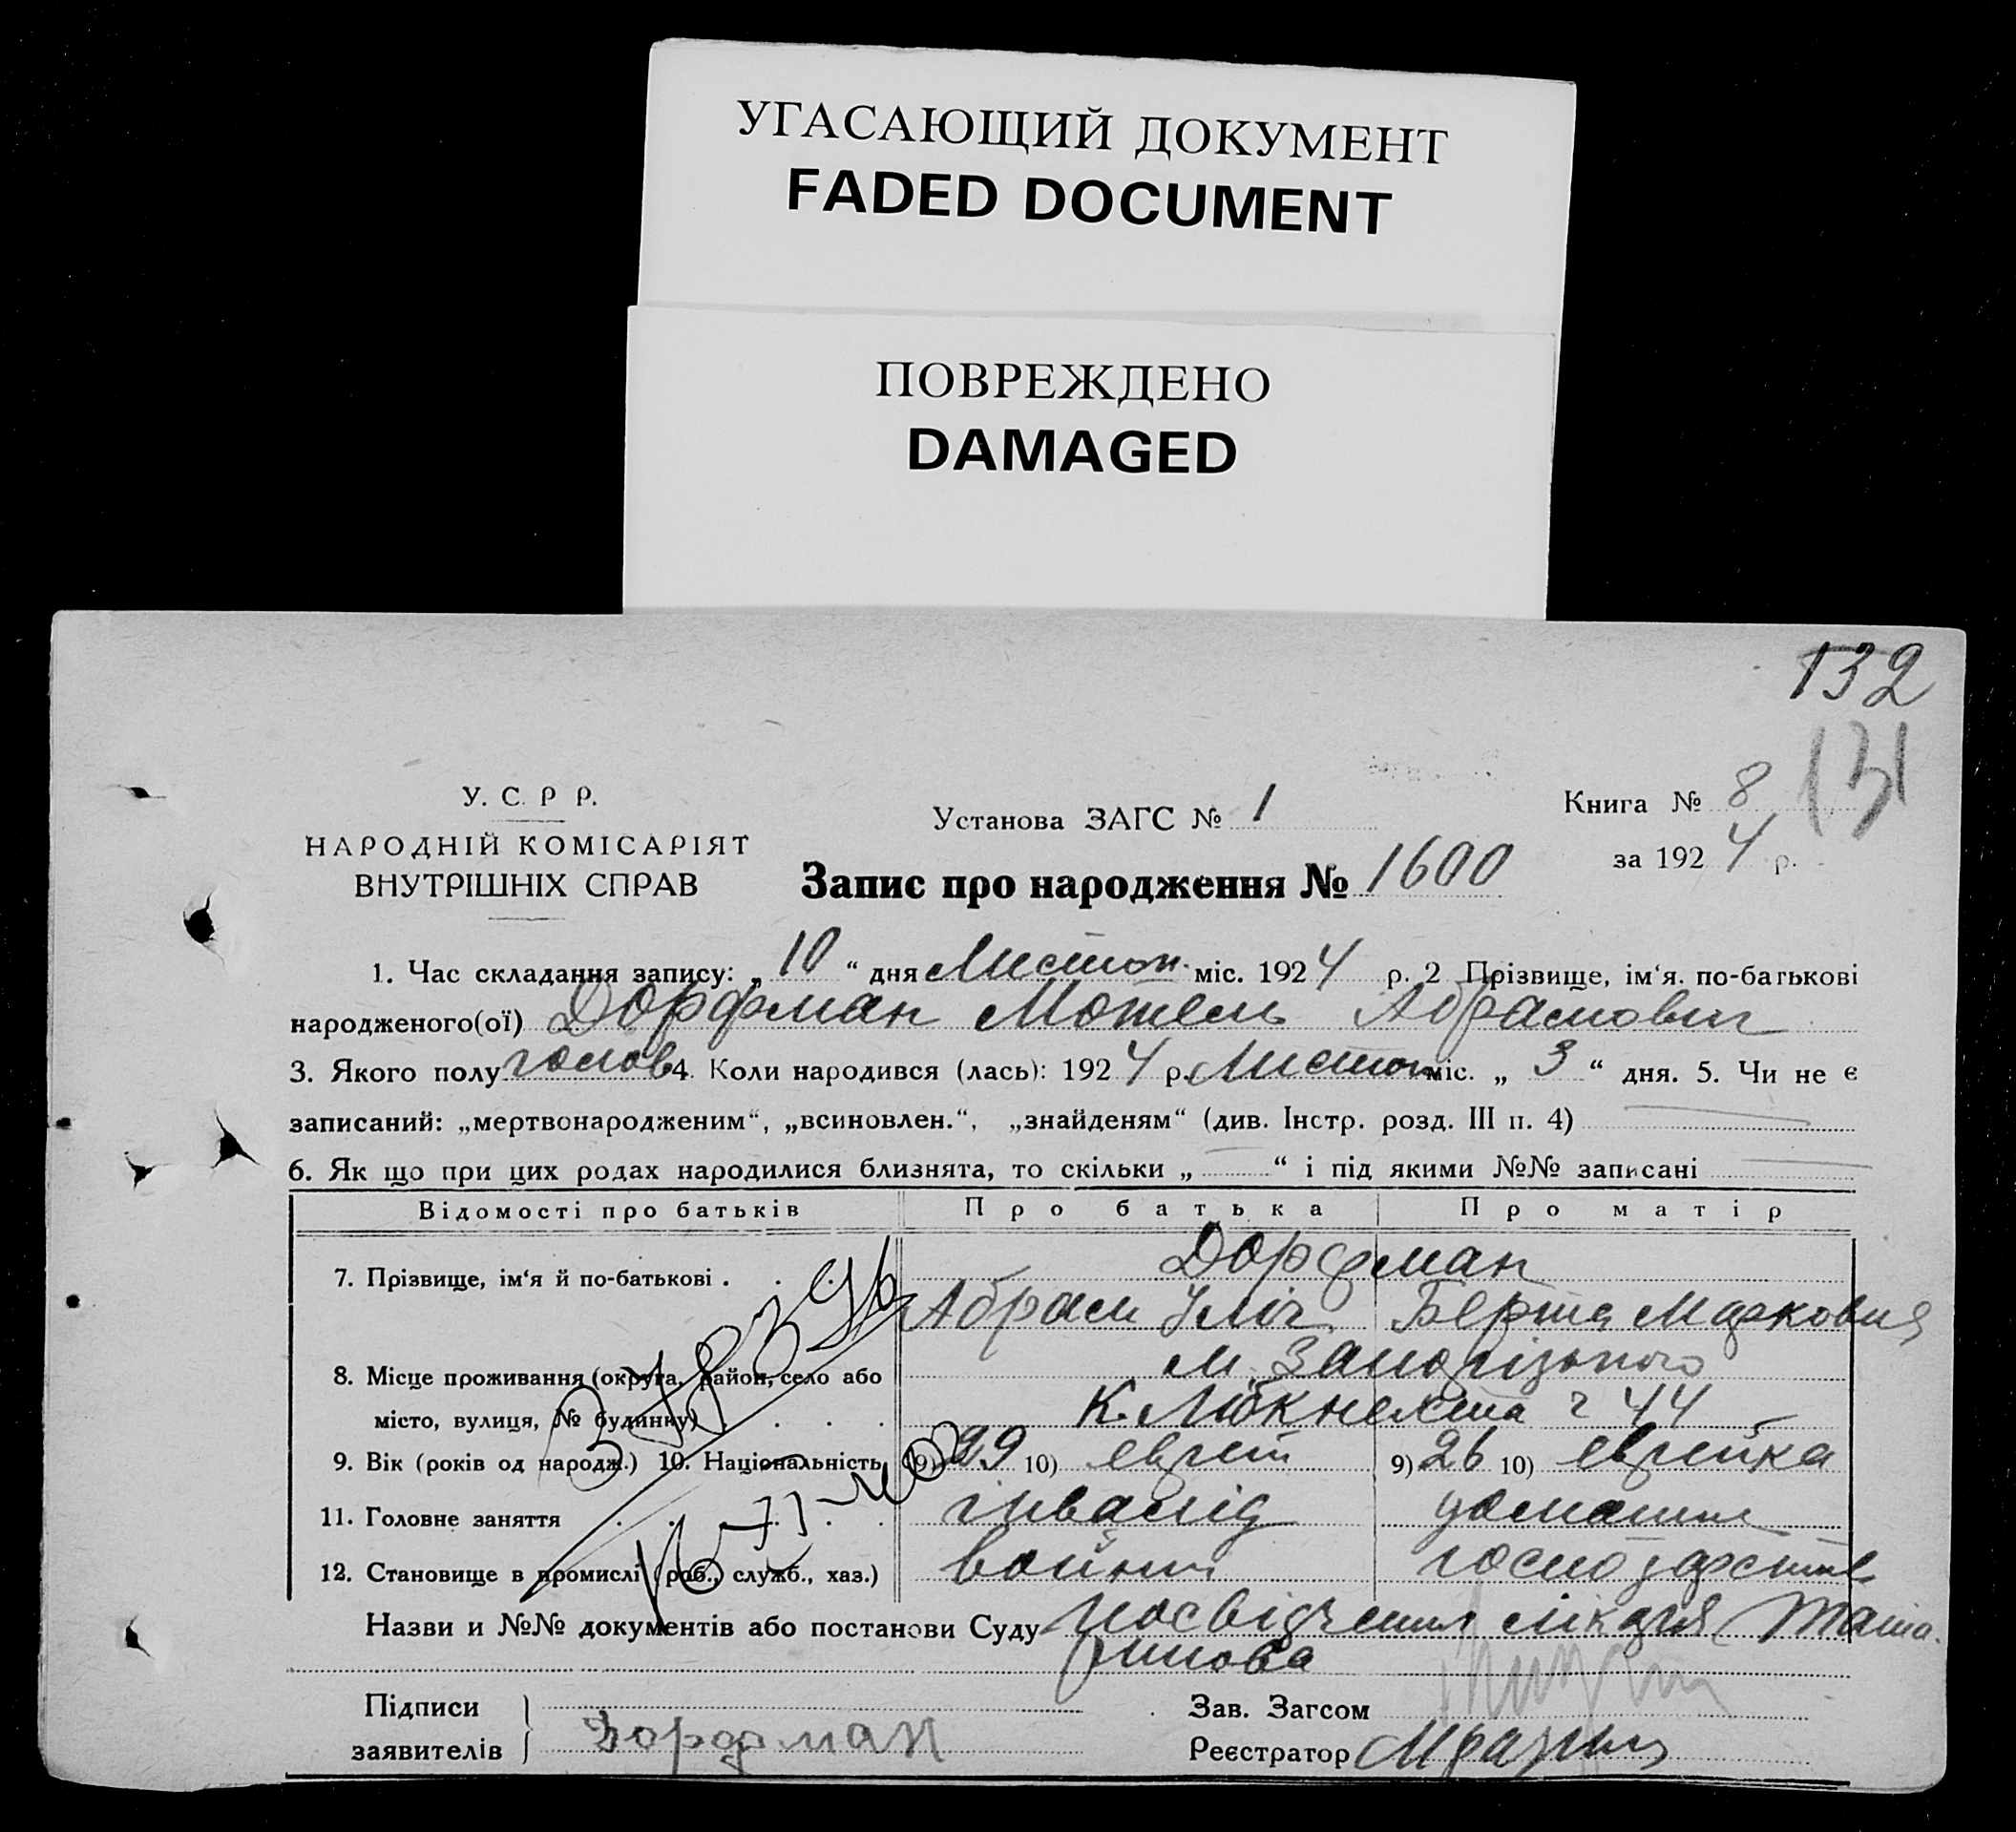 УГАСАЮЩИЙ ДОКУМЕНТ
FADED DOCUMENT
ПОВРЕЖДЕНО
DAMAGED
132
131
У. С. Р Р.
НАРОДНІЙ КОМІСАРІЯТ
ВНУТРІШНІХ СПРАВ
Установа ЗАГС № 1
Книга № 8
за 1924 р.
Запис про народження № 1600
1. Час складання запису: „ 10 “ дня Листоп. міс. 1924 р. 2 Прізвище, ім‘я. по-батькові
народженого(ої) Дорфман Мотель Абрамович
3. Якого полу голов 4. Коли народився (лась): 1924 р. Листоп міс. „ 3 “ дня. 5. Чи не є
записаний: „мертвонародженим“, „всиновлен.“, „знайденям“ (див. Інстр. розд. III п. 4)
6. Як що при цих родах народилися близнята, то скільки „ “ і під якими №№ записані
Відомості про батьків Про батька Про матір
7. Прізвище, ім‘я й по-батькові . Дорфман
Абрам Ілліч Берта Марковна
8. Місце проживання (округа, район, село або м.
місто, вулиця, № будинку) К. Лібкнехта 44
9. Вік (років од народж.) 10. Національність 9) 29 10) еврей 9) 26 10) еврейка
11. Головне заняття інвалід домашне
12. Становище в промислі (роб., служб., хаз.) войни господарство
Назви и №№ документів або постанови Суду посвідчення лікаря
Підписи
заявителів Дорфман
Зав. Загсом
Реєстратор